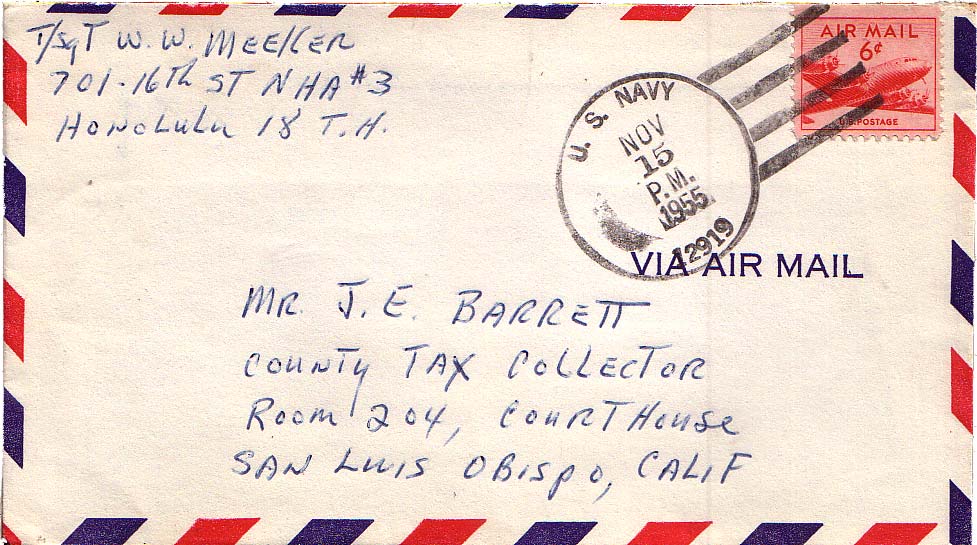 T/SgT W. W. MEEKER
701-16th ST NHA #3
HONOLULU 18 T.H.
U. S. NAVY
NOV
15
P.M.
1955
12919
AIR MAIL
6¢
U.S. POSTAGE
VIA AIR MAIL
MR. J. E. BARRETT
COUNTY TAX COLLECTOR
Room 204, COURT House
SAN LUIS OBISPO, CALIF